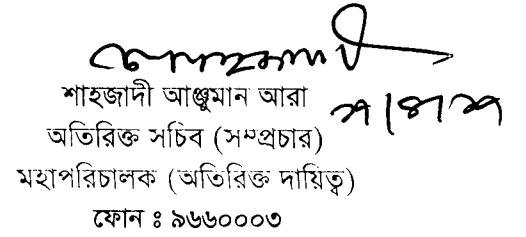 শাহজাদী আঞ্জুমান আরা
অতিরিক্ত সচিব (সম্প্রচার)
মহাপরিচালক (অতিরিক্ত দায়িত্ব)
ফোন ঃ ৯৬৬০০০৩